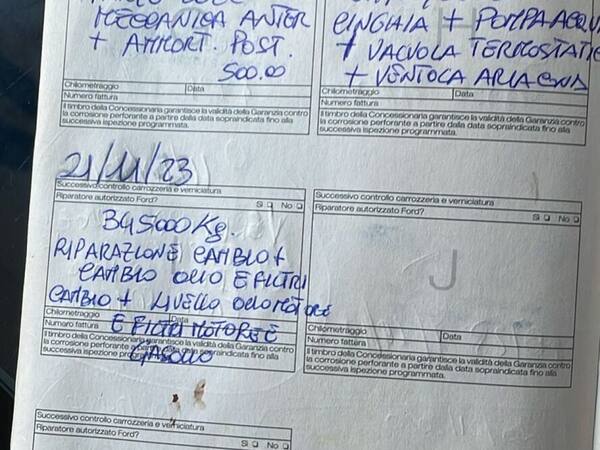 MECCANICA ANTER
+ AMMORT. POST.
500.00
Chilometraggio Data
Numero fattura
Il timbro della Concessionaria garantisce la validità della Garanzia contro
la corrosione perforante a partire dalla data sopraindicata fino alla
successiva ispezione programmata.
CINGHIA + POMPA ACQUA
+ VALVOLA TERMOSTATI
+ VENTOLA ARIA
Chilometraggio Data
Numero fattura
Il timbro della Concessionaria garantisce la validità della Garanzia contro
la corrosione perforante a partire dalla data sopraindicata fino alla
successiva ispezione programmata.
21/11/23
Successivo controllo carrozzeria e verniciatura
Sì No
Riparatore autorizzato Ford?
345000 Kg.
RIPARAZIONE CAMBIO +
CAMBIO OLIO E FILTRI
CAMBIO + LIVELLO OLIO MOTORE
Chilometraggio Data
Numero fattura E FILTRI MOTORE E
Il timbro della Concessionaria garantisce la validità della Garanzia contro
la corrosione perforante a partire dalla data sopraindicata fino alla
successiva ispezione GASOLIO
Successivo controllo carrozzeria e verniciatura
Sì No
Riparatore autorizzato Ford?
J
Chilometraggio Data
Numero fattura
Il timbro della Concessionaria garantisce la validità della Garanzia contro
la corrosione perforante a partire dalla data sopraindicata fino alla
successiva ispezione programmata.
Successivo controllo carrozzeria e verniciatura
Sì No
Riparatore autorizzato Ford?